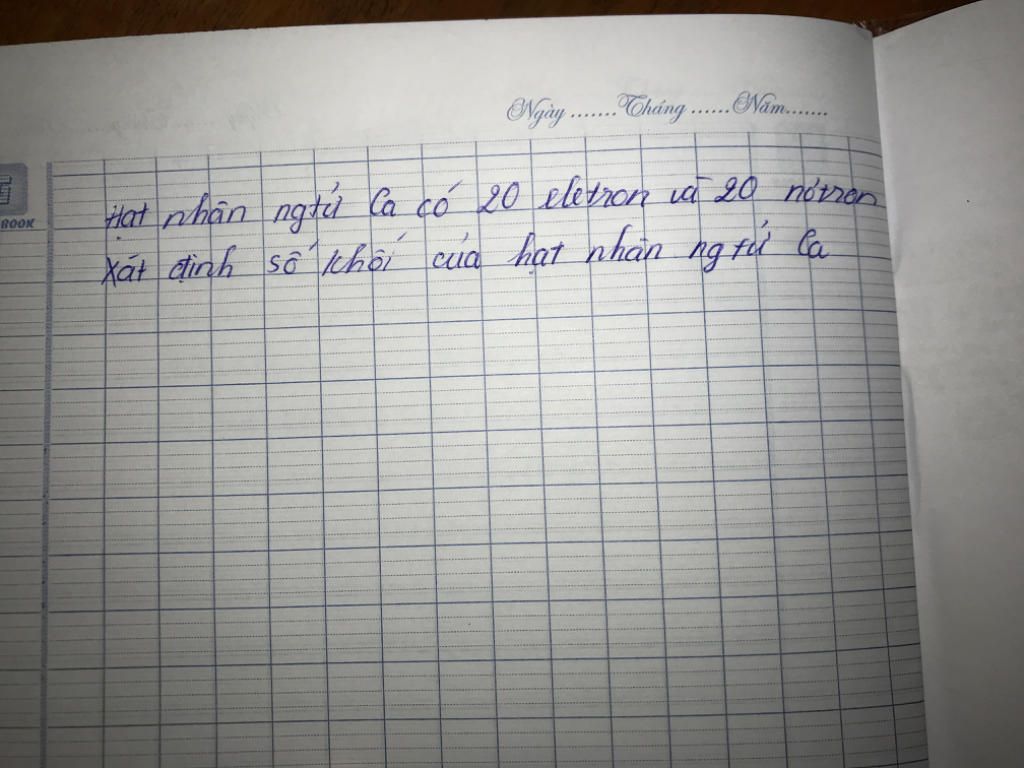 Ngày.......Tháng......Năm.......
BOOK
Hạt nhân ngtử Ca có 20 eletron và 20 nơtron
Xát định số khối của hạt nhân ng tử Ca